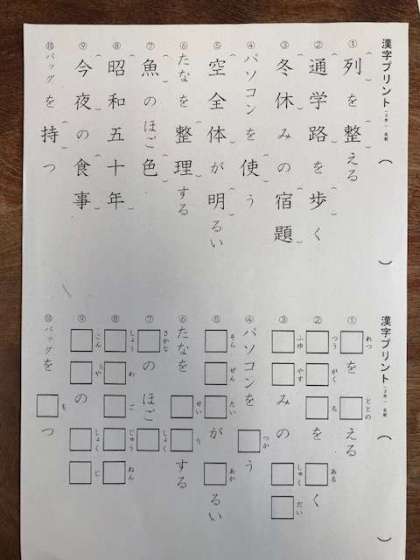 漢字プリント （ ）
① 列を整える
② 通学路を歩く
③ 冬休みの宿題
④ パソコンを使う
⑤ 空全体が明るい
⑥ たなを整理する
⑦ 魚のほご色
⑧ 昭和五十年
⑨ 今夜の食事
⑩ バッグを持つ
漢字プリント （ ）
① れつ を ととの える
② つう がく ろ を ある く
③ ふゆ やす みの しゅく だい
④ パソコンを つか う
⑤ そら ぜん たい が あか るい
⑥ たなを せい り する
⑦ さかな のほご しょく
⑧ しょう わ ご じゅう ねん
⑨ こん や の しょく じ
⑩ バッグを も つ